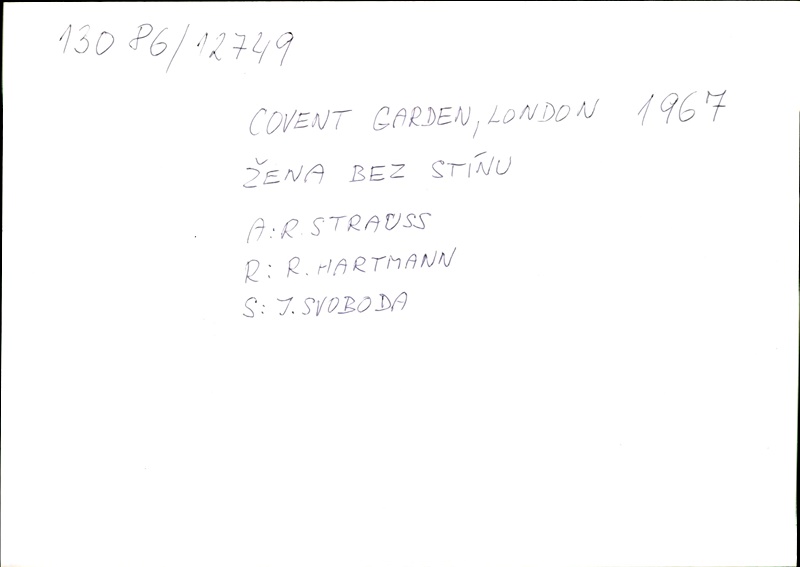 130 86/12749
COVENT GARDEN, LONDON 1967
ŽENA BEZ STÍNU
A: R. STRAUSS
R: R. HARTMANN
S: J. SVOBODA